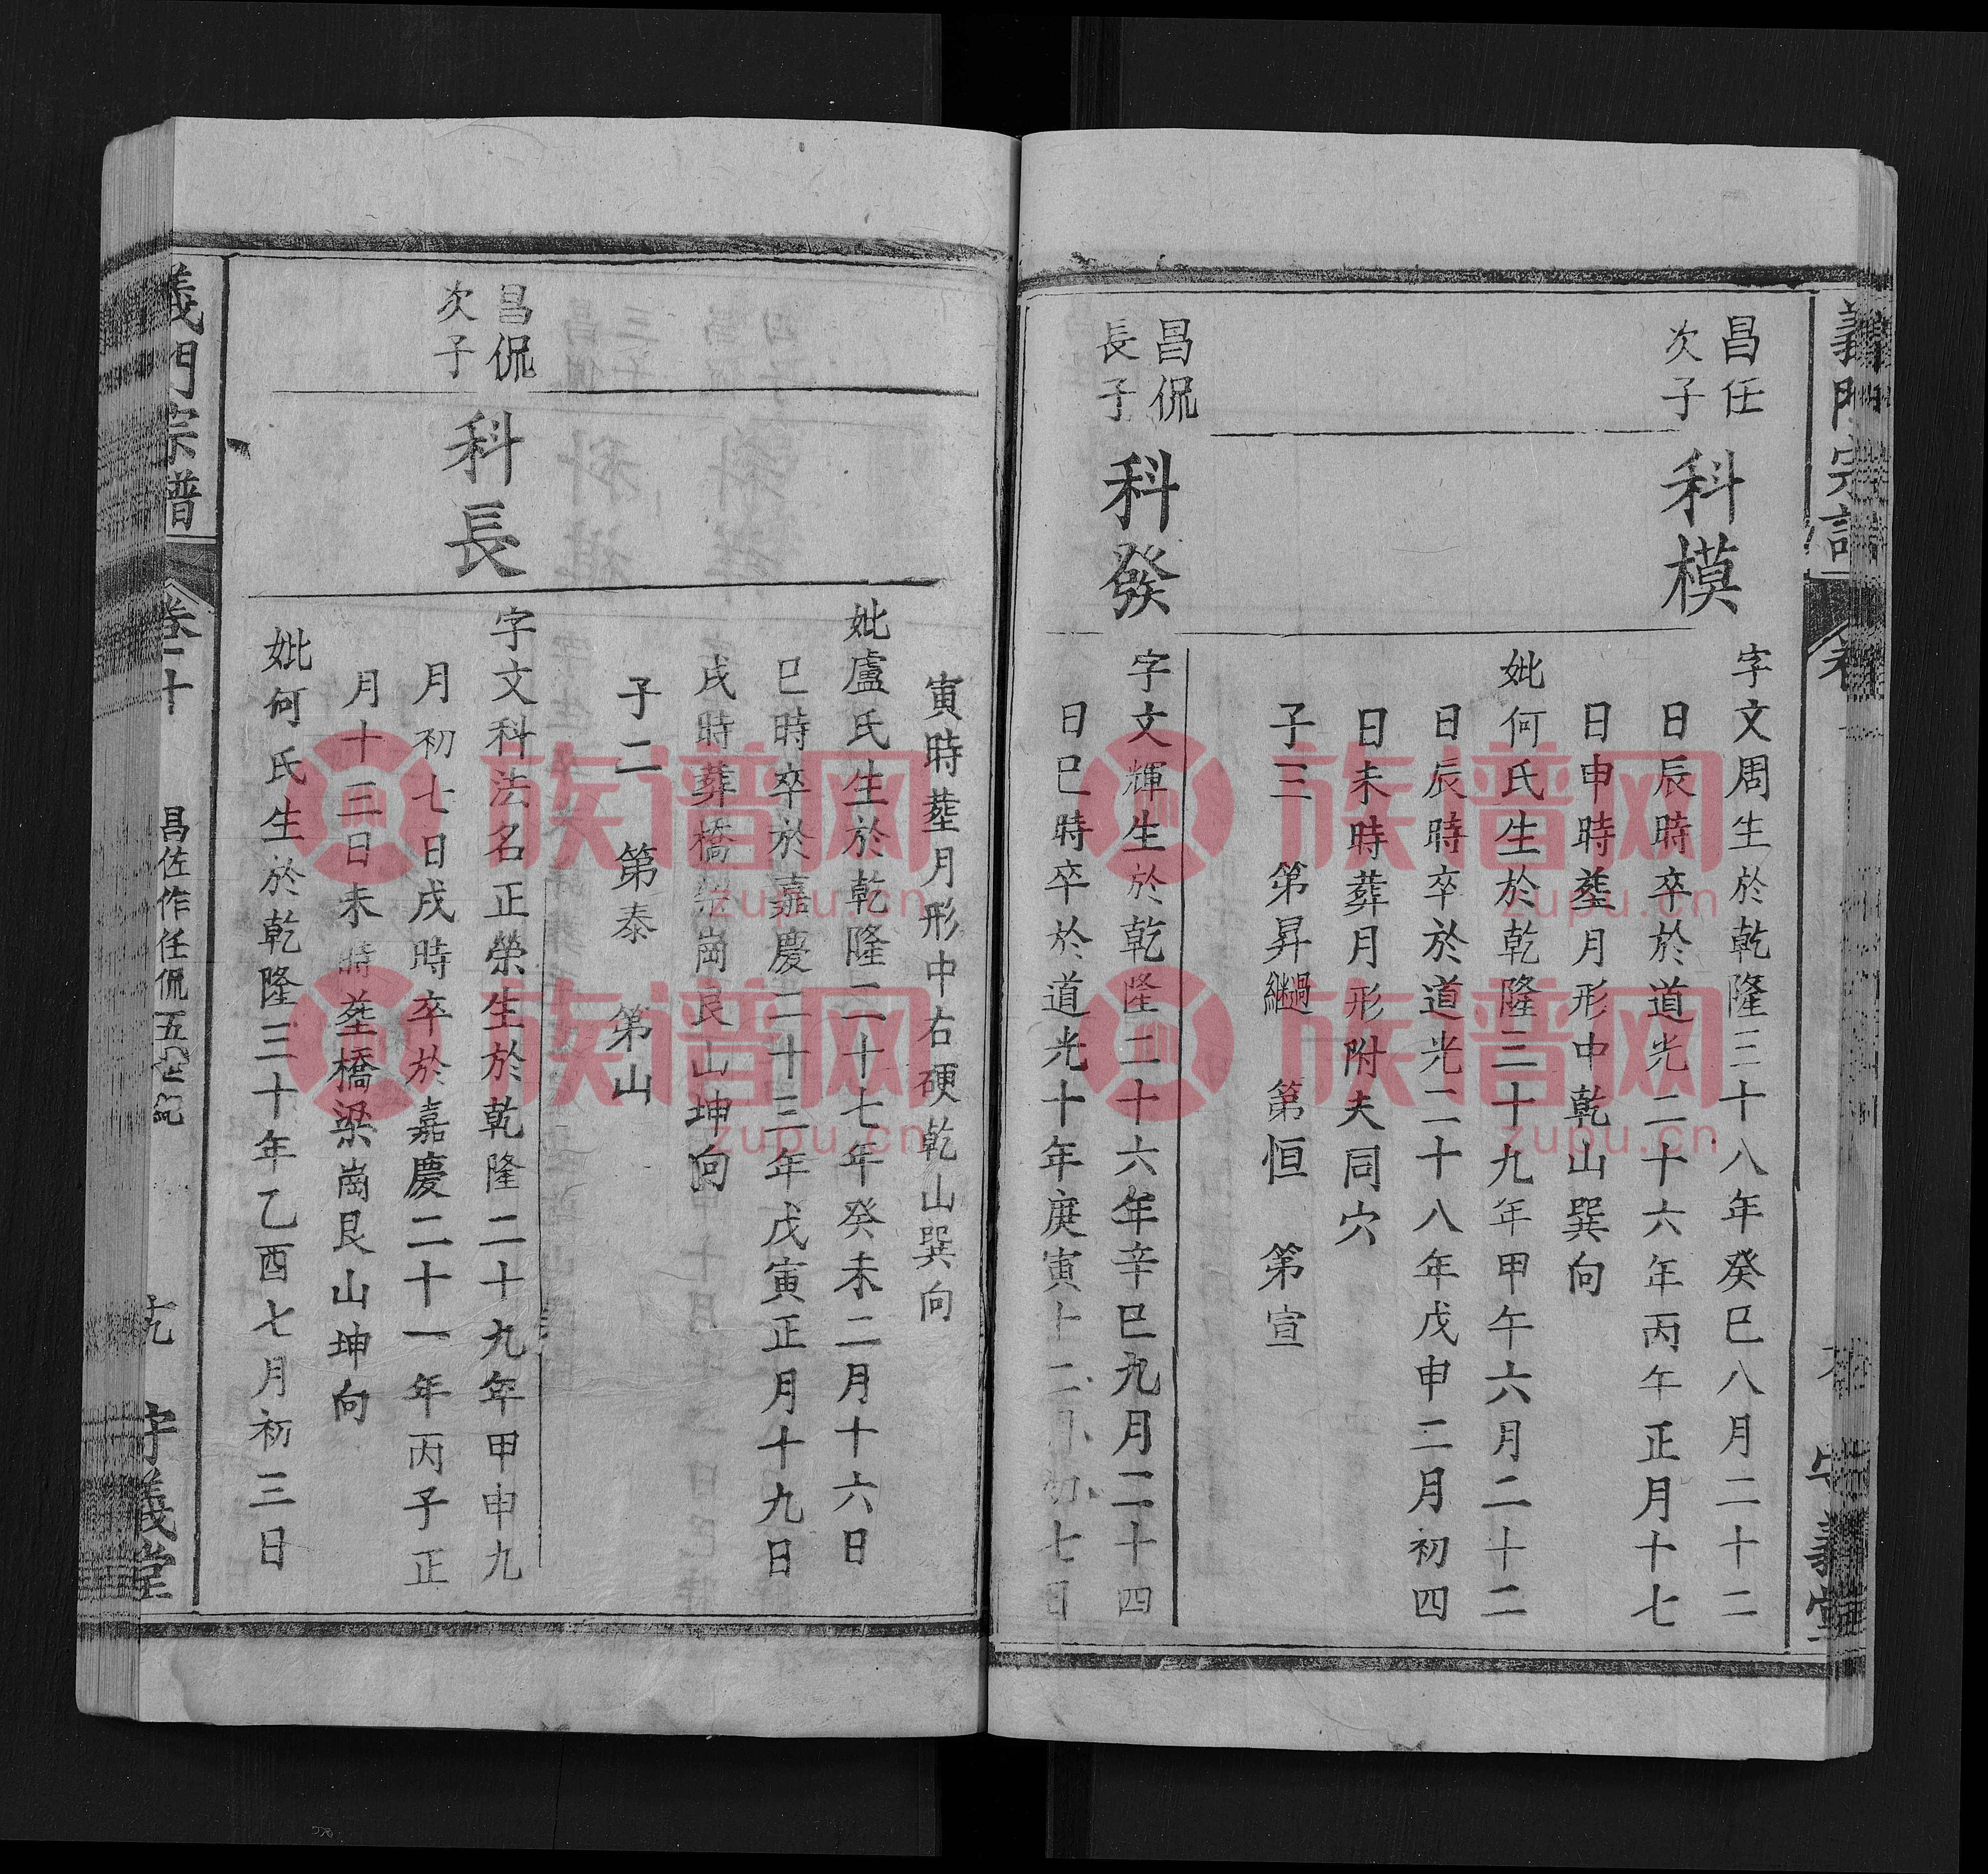 昌任
次子
科模
字文周生於乾隆三十八年癸巳八月二十二
日辰時卒於道光二十六年丙午正月十七
日申時塟月形中乾山巽向
妣何氏生於乾隆三十九年甲午六月二十二
日辰時卒於道光二十八年戊申二月初四
日未時葬月形附夫同穴
子三 第昇繼過 第恒 第宣
昌侃
長子
科發
字文輝生於乾隆二十六年辛巳九月二十四
日巳時卒於道光十年庚寅十二月初七日
寅時塟月形中右硬乾山巽向
妣盧氏生於乾隆二十七年癸未二月十六日
巳時卒於嘉慶二十三年戊寅正月十九日
戌時葬橋梁崗艮山坤向
子二 第泰 第山
昌侃
次子
科長
字文科法名正榮生於乾隆二十九年甲申九
月初七日戌時卒於嘉慶二十一年丙子正
月十三日未時塟橋梁崗艮山坤向
妣何氏生於乾隆三十年乙酉七月初三日
義門宗譜
卷二十
昌佐作任侃五世紀
義堂
族谱网
zupu.cn
族谱网
zupu.cn
族谱网
zupu.cn
族谱网
zupu.cn